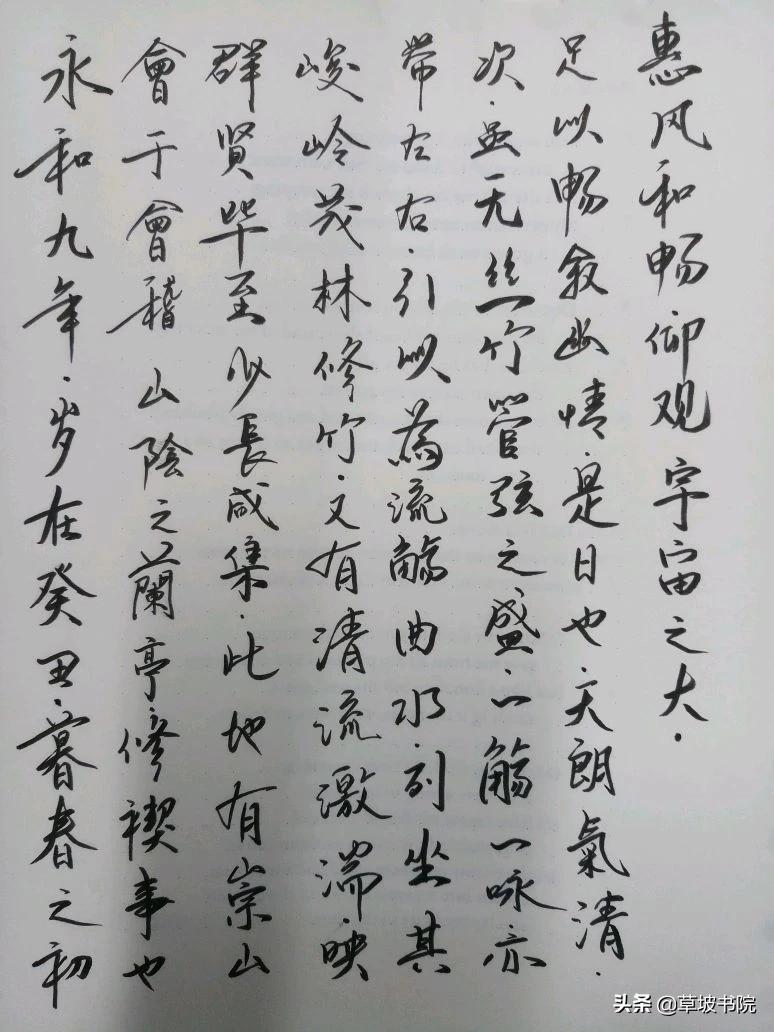 永和九年.岁在癸丑.暮春之初
會于會稽山陰之蘭亭.修禊事也
群賢毕至少長咸集.此地有崇山
峻岭茂林修竹.又有清流激湍.映
带左右.引以為流觴曲水.列坐其
次.虽无丝竹管弦之盛.一觴一咏亦
足以畅叙幽情.是日也.天朗氣清.
惠风和畅仰观宇宙之大.
头条 @草坡书院